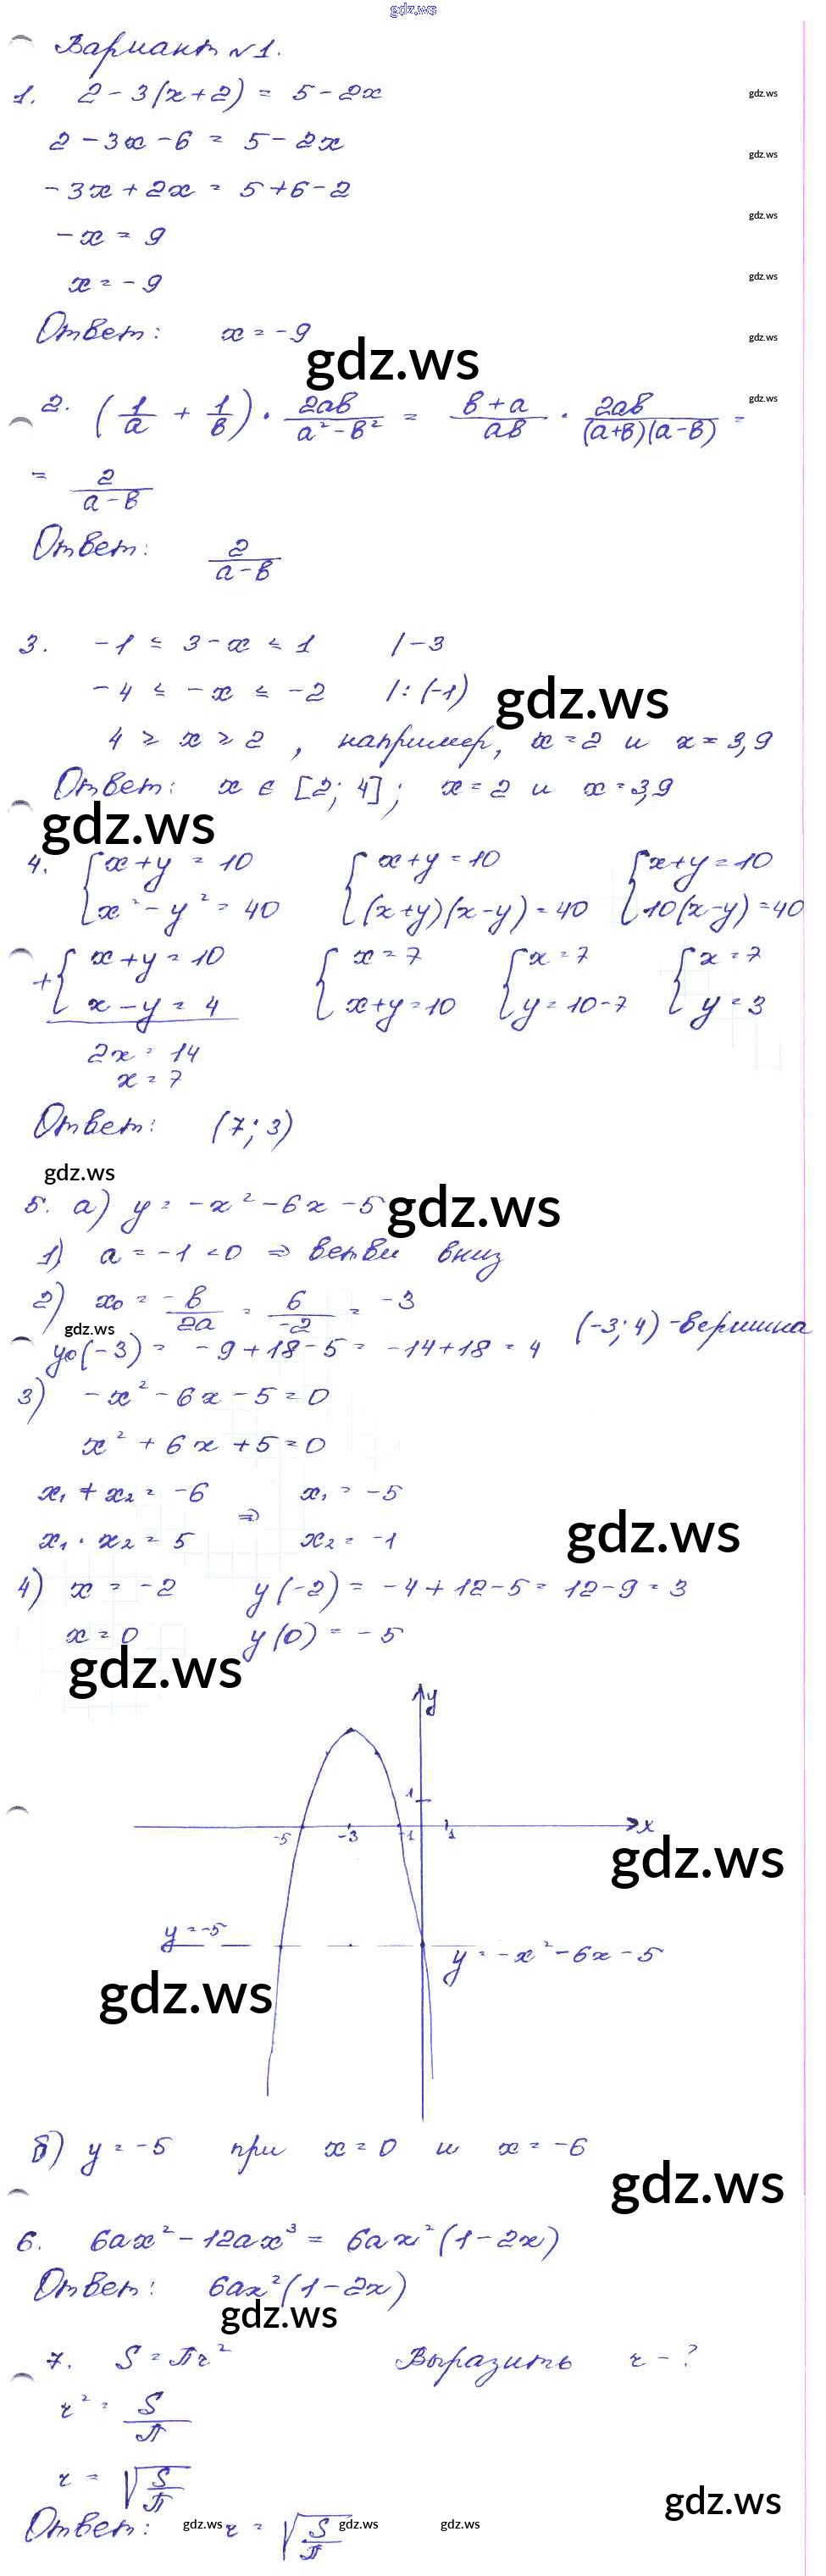 gdz.ws
Вариант №1.
1. 2-3(x+2) = 5-2x
gdz.ws
2-3x-6 = 5-2x
gdz.ws
-3x+2x = 5+6-2
gdz.ws
-x = 9
x = -9
gdz.ws
Ответ: x = -9
gdz.ws
gdz.ws
gdz.ws
2. (1/a + 1/b) · 2ab/(a²-b²) = (b+a)/ab · 2ab/((a+b)(a-b)) =
= 2/(a-b)
Ответ: 2/(a-b)
3. -1 ≤ 3-x ≤ 1 |-3
-4 ≤ -x ≤ -2 |:(-1)
gdz.ws
4 ≥ x ≥ 2, например, x=2 и x=3,9
Ответ: x ∈ [2; 4]; x=2 и x=3,9
gdz.ws
4. {x+y = 10 {x+y = 10 {x+y = 10
x²-y² = 40 (x+y)(x-y) = 40 10(x-y) = 40
+{x+y = 10 {x = 7 {x = 7 {x = 7
x-y = 4 x+y = 10 y = 10-7 y = 3
2x = 14
x = 7
Ответ: (7; 3)
gdz.ws
5. а) y = -x²-6x-5
gdz.ws
1) a = -1 <0 ⇒ ветви вниз
2) x₀ = -b/2a = 6/-2 = -3
gdz.ws
(-3; 4) - вершина
y₀(-3) = -9+18-5 = -14+18 = 4
3) -x²-6x-5=0
x²+6x+5=0
x₁+x₂ = -6 ⇒ x₁ = -5
x₁·x₂ = 5 x₂ = -1
gdz.ws
4) x = -2 y(-2) = -4+12-5 = 12-9 = 3
x = 0 y(0) = -5
gdz.ws
y
1
-5 -3 -1 1 x
gdz.ws
y = -5
y = -x²-6x-5
gdz.ws
б) y = -5 при x = 0 и x = -6
gdz.ws
6. 6ax²-12ax³ = 6ax²(1-2x)
Ответ: 6ax²(1-2x)
gdz.ws
7. S = πr² Выразить r - ?
r² = S/π
r = √(S/π)
gdz.ws
Ответ: r = √(S/π)
gdz.ws
gdz.ws
gdz.ws